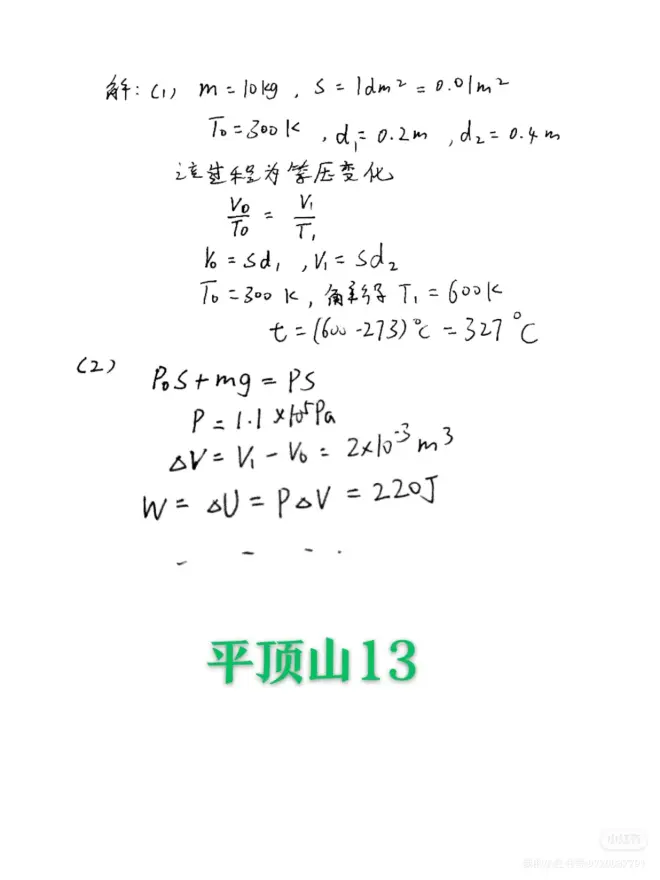 解：(1) m=10kg，S=1dm²=0.01m²
T₀=300K，d₁=0.2m，d₂=0.4m
该过程为等压变化
V₀/T₀ = V₁/T₁
V₀=Sd₁，V₁=Sd₂
T₀=300K，解得 T₁=600K
t=(600-273)℃=327℃
(2) P₀S+mg=PS
P=1.1×10⁵Pa
△V=V₁-V₀=2×10⁻³m³
W=△U=P△V=220J
平顶山13
小红书